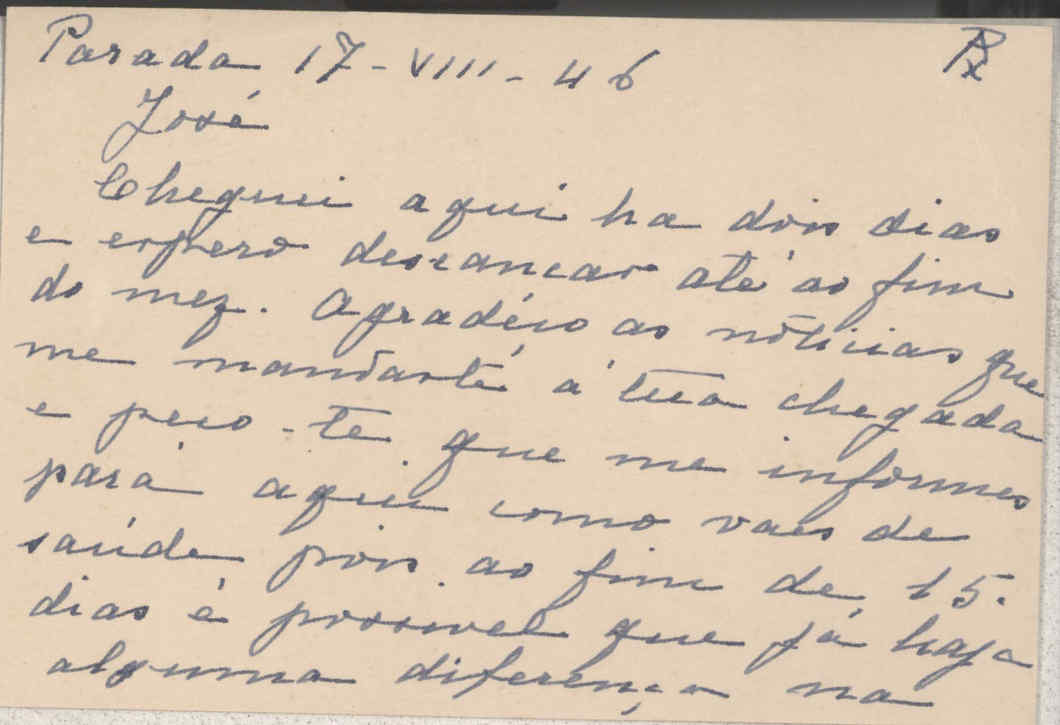 Parada 17-VIII-46
José
Cheguei aqui ha dois dias
e espero descançar até ao fim
do mez. Agradéço as nóticias que
me mandaste á tua chegada
e peço-te que me informes
para aqui como vaes de
saúde pois ao fim de 15
dias é possivel que já haja
alguma diferença na